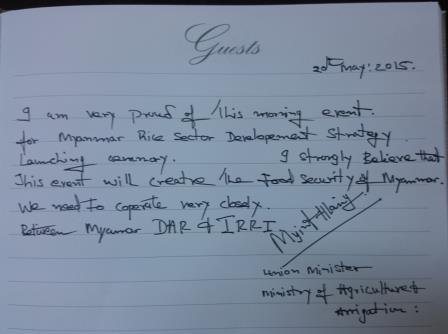 Guests
20th May: 2015.
I am very proud of this morning event.
for Myanmar Rice Sector Development Strategy
Launching ceremony. I strongly Believe that
This event will create the Food security of Myanmar.
We need to coperate very closely.
Between Myanmar DAR & IRRI
Myint Hlaing
Union Minister
Ministry of Agriculture &
Irrigation: